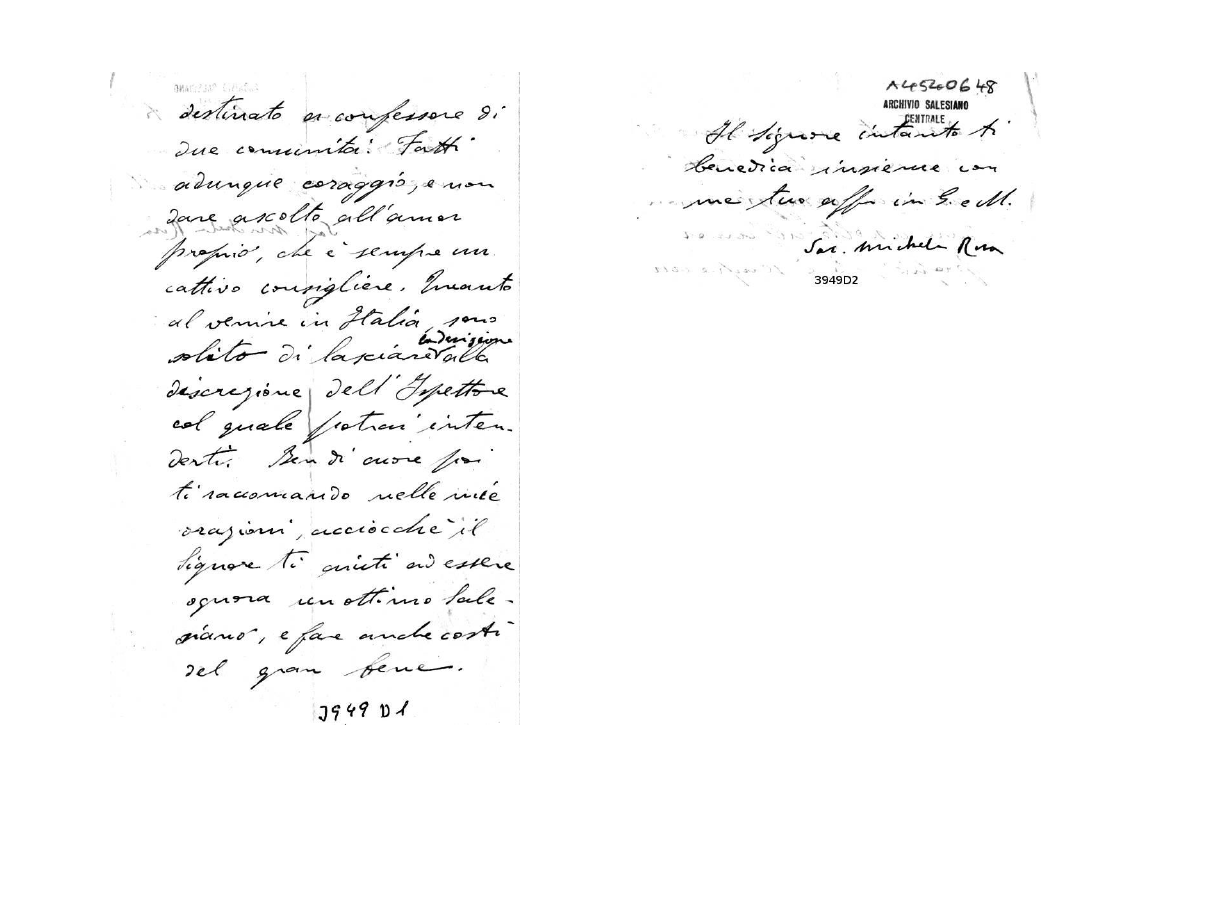 destinato a confessore di
due comunità. Fatti
adunque coraggio, e non
dare ascolto all'amor
proprio, che è sempre un
cattivo consigliere. Quanto
al venire in Italia, sono
solito di lasciare la decisione alla
discrezione dell'Ispettore
col quale potrai inten-
derti. Ben di cuore poi
ti raccomando nelle mie
orazioni, acciocchè il
Signore ti aiuti ad essere
ognora un ottimo Sale-
siano, e fare anche costì
del gran bene.
3949 D1
A4540648
ARCHIVIO SALESIANO
CENTRALE
Il Signore intanto ti
benedica insieme con
me tuo aff. in G. e M.
Sac. Michele Rua
3949D2